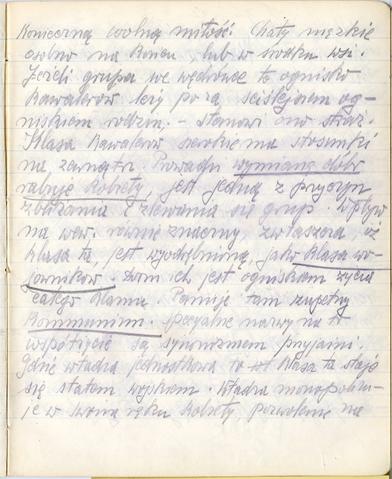 konieczną wolną miłość. Chaty męzkie
osobno na końcu, lub w środku wsi.
Jezeli grupa we wędrówce to ognisko
Kawalerów leży poza ściślejszem og-
niskiem rodzin, – stanowi ono straż.
Klasa Kawalerów szerokie ma stosunki
na zewnątrz. Prowadzi wymianę dóbr
rabuje Kobiety, jest jedną z przyczyn
zbliżania i zlewania się grup. Wpływ
na wew. równie znaczny zwłaszcza, iż
klasa ta jest wyodrębnioną, jako klasa wo-
jowników. Dom ich jest ogniskiem życia
całego klanu. Panuje tam zupełny
Kommunizm. Specjalne nazwy na to
współżycie są synonimem przyjaźni.
Gdzie władza jednostkowa to klasa ta staje
się stałem wojskiem. Władza monopolizu-
je w swoim ręku Kobiety, pozwolenie na